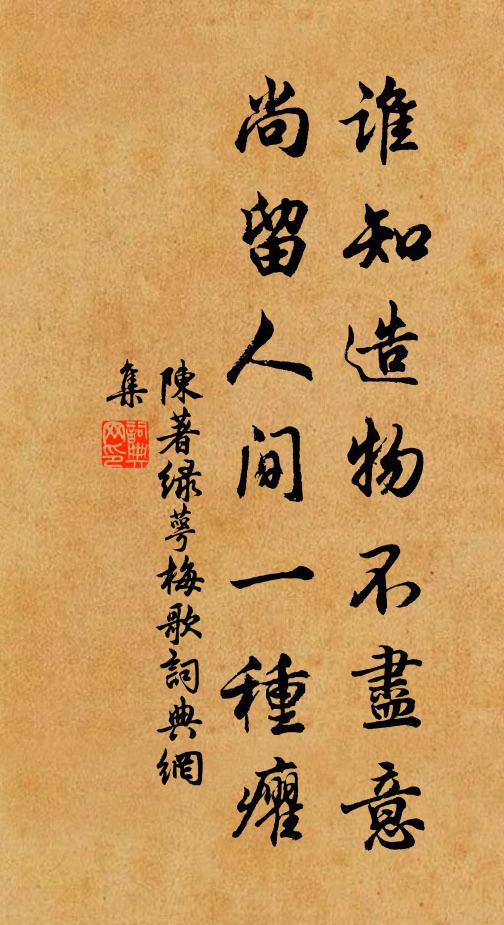 誰知造物不盡意
尚留人间一種癯
陳著绿萼梅歌詞典網
集
詞典
网印